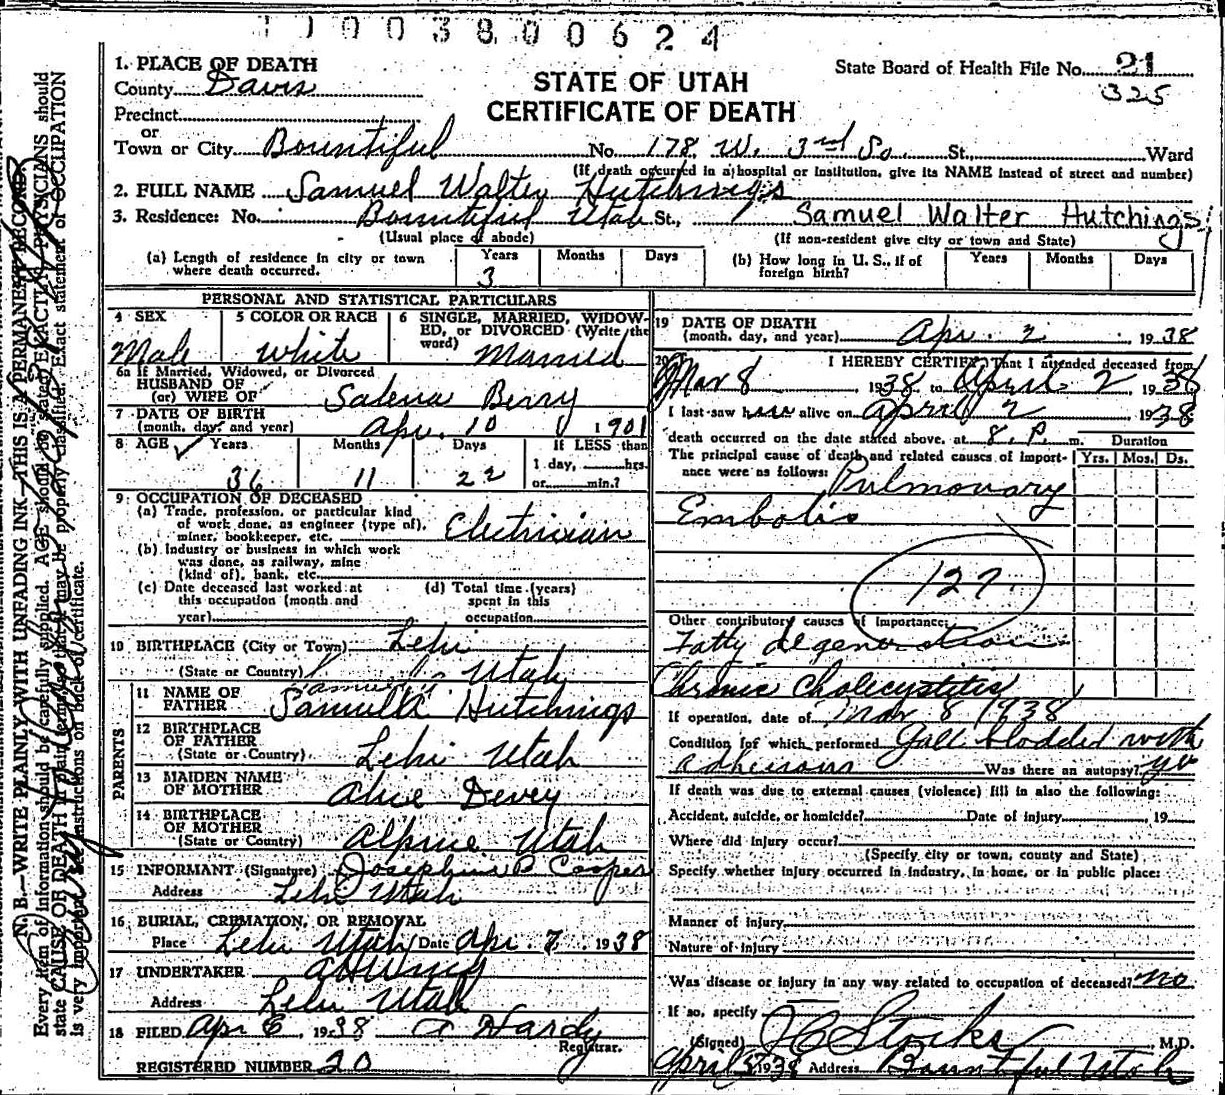 1 1 0 0 3 8 0 0 6 2 4
1. PLACE OF DEATH
County Davis
Precinct
or
Town or City Bountiful No. 178 W. 3rd So. St., Ward
STATE OF UTAH
CERTIFICATE OF DEATH
State Board of Health File No. 21
325
(If death occurred in a hospital or institution, give its NAME instead of street and number)
2. FULL NAME Samuel Walter Hutchings
3. Residence: No. Bountiful Utah St., Samuel Walter Hutchings
(Usual place of abode) (If non-resident give city or town and State)
(a) Length of residence in city or town where death occurred. Years 3 Months Days
(b) How long in U. S., if of foreign birth? Years Months Days
PERSONAL AND STATISTICAL PARTICULARS
4 SEX 5 COLOR OR RACE 6 SINGLE, MARRIED, WIDOW-
ED, or DIVORCED (Write the
word)
Male White Married
6a If Married, Widowed, or Divorced
HUSBAND OF
(or) WIFE OF Salena Berry
7 DATE OF BIRTH
(month, day, and year) Apr. 10 1901
8 AGE Years Months Days If LESS than
1 day, hrs.
or min.?
36 11 22
9 OCCUPATION OF DECEASED
(a) Trade, profession, or particular kind
of work done, as engineer (type of),
miner, bookkeeper, etc. Electrician
(b) Industry or business in which work
was done, as railway, mine
(kind of), bank, etc.
(c) Date deceased last worked at
this occupation (month and
year)
(d) Total time (years)
spent in this
occupation
10 BIRTHPLACE (City or Town) Lehi
(State or Country) Utah
PARENTS
11 NAME OF
FATHER Samuel Hutchings
12 BIRTHPLACE
OF FATHER
(State or Country) Lehi Utah
13 MAIDEN NAME
OF MOTHER Alice Devey
14 BIRTHPLACE
OF MOTHER
(State or Country) Alpine Utah
15 INFORMANT (Signature) Josephine P Cooper
Address Lehi Utah
16 BURIAL, CREMATION, OR REMOVAL
Place Lehi Utah Date Apr. 7 1938
17 UNDERTAKER
Address Lehi Utah
18 FILED Apr 6 1938 A Hardy
Registrar.
REGISTERED NUMBER 20
19 DATE OF DEATH
(month, day, and year) Apr. 2 1938
20 I HEREBY CERTIFY That I attended deceased from
Mar 8 1938 to April 2 1938
I last saw him alive on April 2 1938
death occurred on the date stated above, at 8. P. m. Duration
The principal cause of death and related causes of import-
ance were as follows: Yrs. Mos. Ds.
Pulmonary
Embolis
127
Other contributory causes of importance:
Fatty degeneration
Chronic Cholecystitis
If operation, date of Mar 8 1938
Condition for which performed Gall bladded with
adhesions Was there an autopsy? yes
If death was due to external causes (violence) fill in also the following:
Accident, suicide, or homicide? Date of injury 19
Where did injury occur?
(Specify city or town, county and State)
Specify whether injury occurred in industry, in home, or in public place:
Manner of injury
Nature of injury
Was disease or injury in any way related to occupation of deceased? no
If so, specify
(Signed) Stocks, M.D.
April 1938 Address Bountiful Utah
N. B.—WRITE PLAINLY WITH UNFADING INK—THIS IS A PERMANENT RECORD.
Every item of information should be carefully supplied. AGE should be stated EXACTLY. PHYSICIANS should
state CAUSE OF DEATH in plain terms, so that it may be properly classified. Exact statement of OCCUPATION
is very important. See instructions on back of certificate.